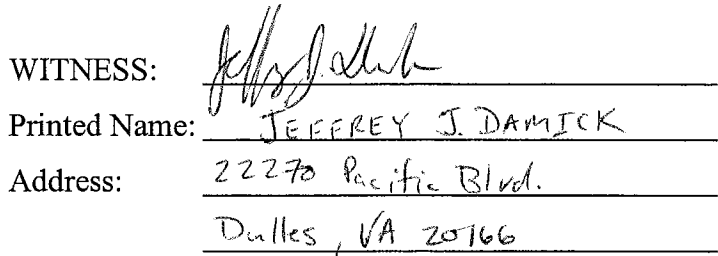 WITNESS: Jeffrey J. Damick
Printed Name: JEFFREY J. DAMICK
Address: 22270 Pacific Blvd.
Dulles, VA 20166